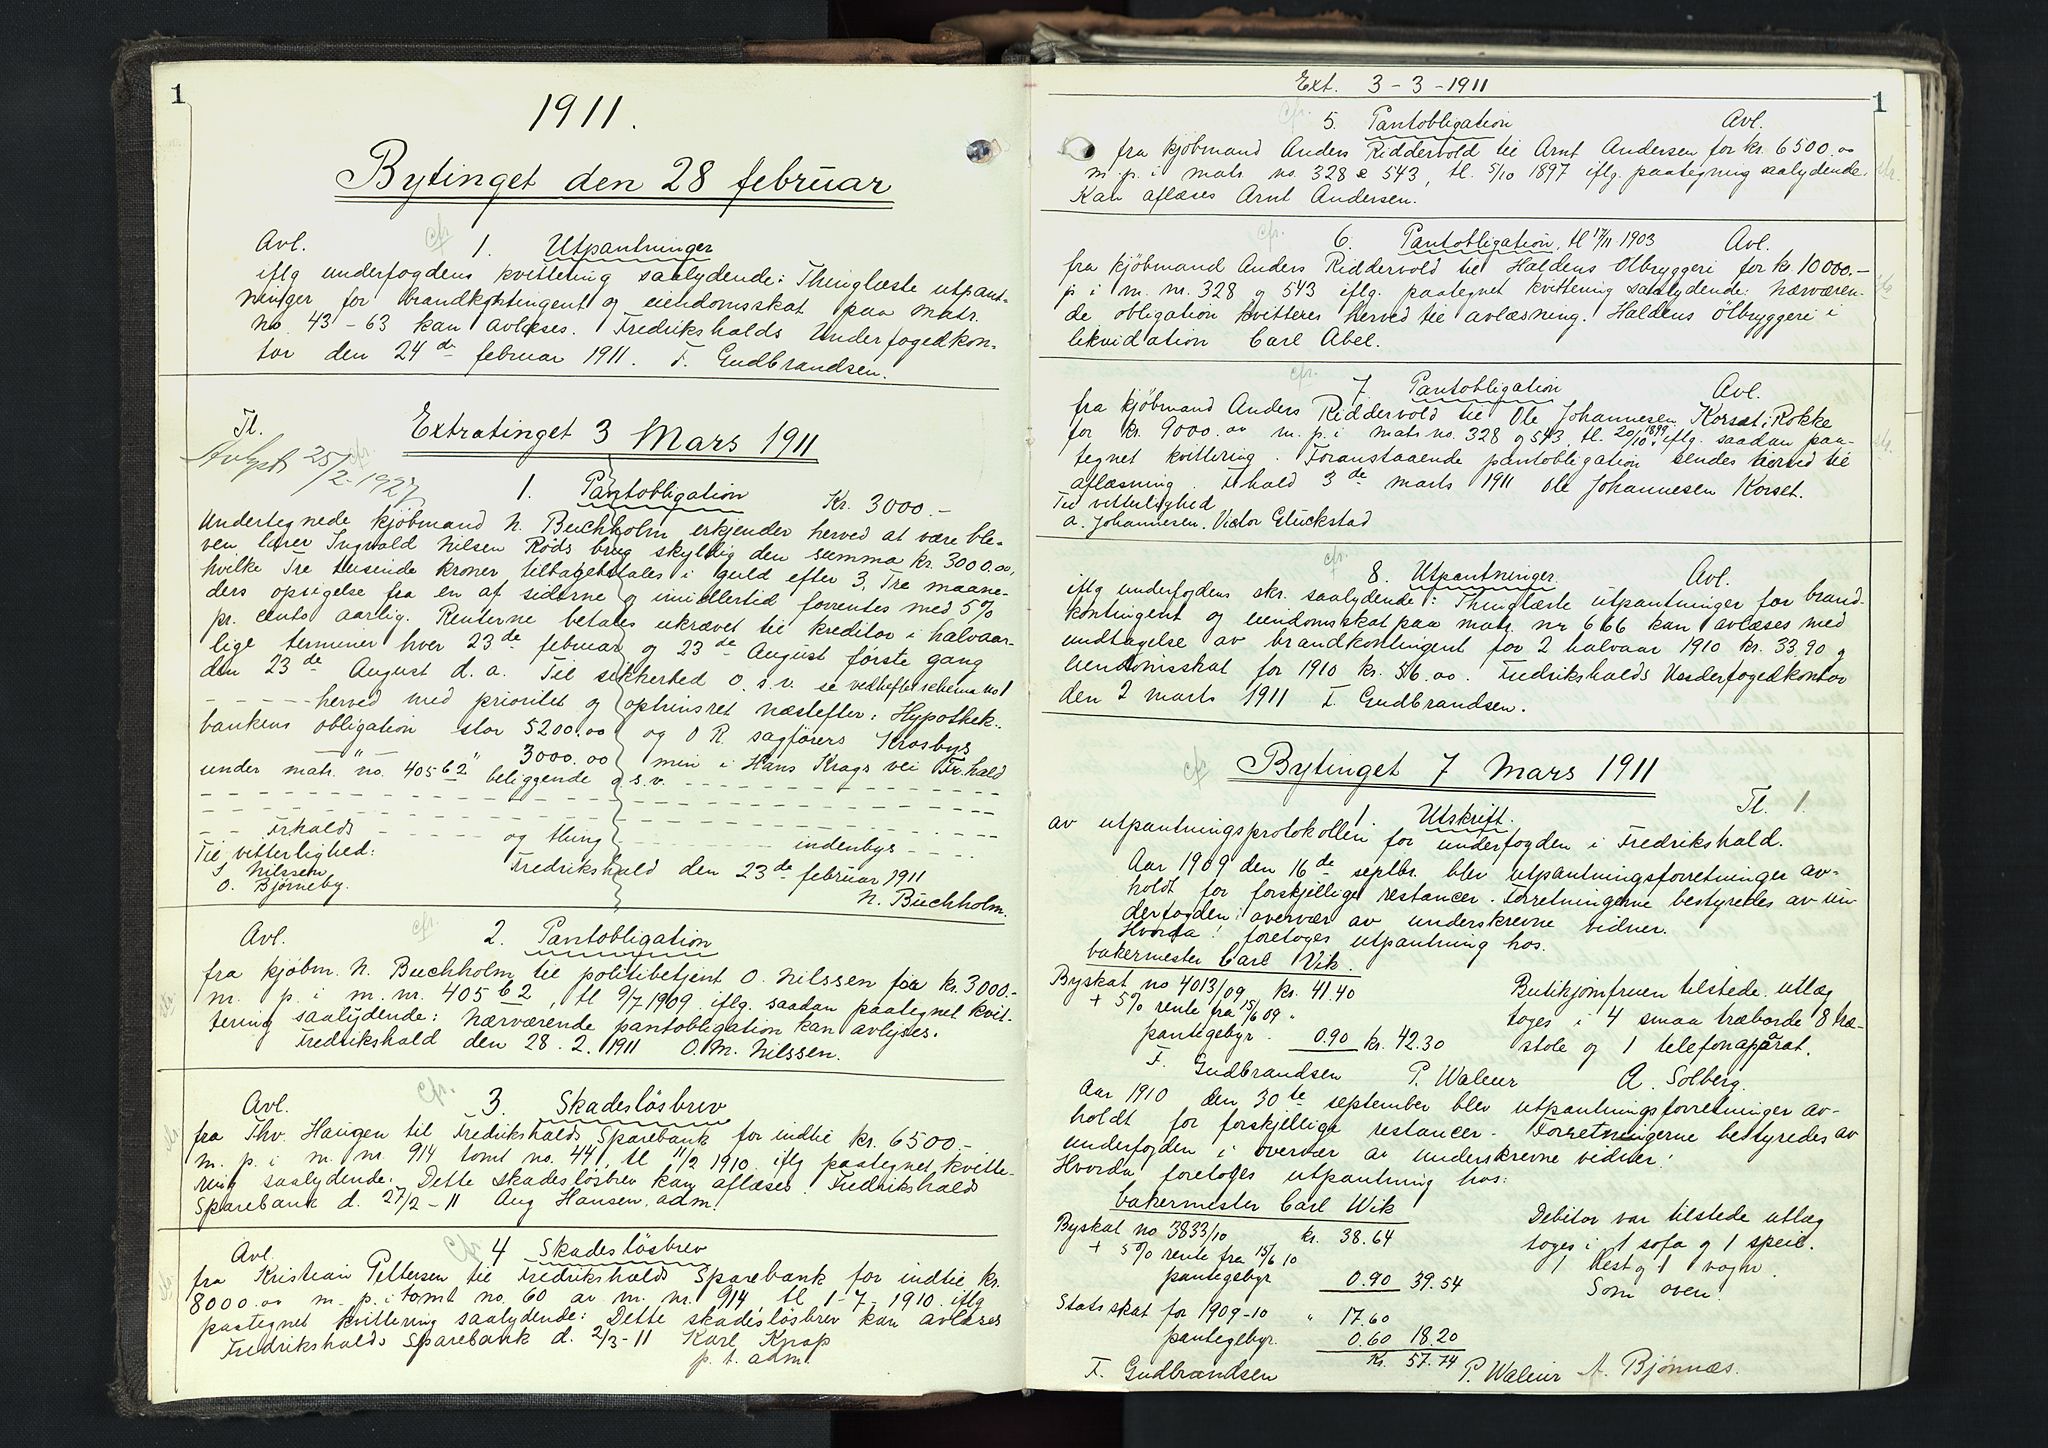 1
1911.
Bytinget den 28 februar
Avl. cfr. 1. Utpantninger
iflg underfogdens kvittering saalydende: Thinglæste utpant-
ninger for brandkontingent og eiendomsskat paa matr.
no. 43-63 kan avlæses. Fredrikshalds Underfogedkon-
tor den 24de februar 1911. F. Gudbrandsen.
Tl. Extratinget 3 Mars 1911
Avlyst 25/2-1927 cfr.
1. Pantobligation Kr. 3000.-
Undertegnede kjøbmand N. Buchholm erkjender herved at være ble-
ven lærer Ingvald Nilsen Røds brug skyldig den summa kr. 3000.00,
hvilke Tre tusende kroner tilbagebetales i guld efter 3, Tre maane-
ders opsigelse fra en af siderne og imidlertid forrentes med 5%
pr. cents aarlig. Renterne betales ukrævet til kreditor i halvaar-
lige terminer hver 23de februar og 23de August første gang
den 23de August d. a. Til sikkerhed o. s. v. se vedheftet schema no 1
- - - - - herved med prioritet og optrinsret næstefter: Hypothek-
bankens obligation stor 5200.00 og O R. sagfører Krosbys
— " — " 3000.00 min i Hans Krags vei Fr.hald
under matr. no. 405 b 2 beliggende o s. v. - - - -
- - Frhalds - - - - og thing - - - - indenbys - - -
Til vitterlighed: Fredrikshald den 23de februar 1911
S Nilssen N. Buchholm.
O. Bjørneby.
Avl. cfr. 2. Pantobligation
fra kjøbm. N. Buchholm til politibetjent O. Nilssen for kr. 3000.-
m. p. i m. nr. 405 b 2, tl 9/7 1909 iflg. saadan paategnet kvit-
tering saalydende: Nærværende pantobligation kan avlyses.
Fredrikshald den 28. 2. 1911 O. M. Nilssen.
Avl. cfr. 3. Skadesløsbrev
fra Thv. Haugen til Fredrikshalds Sparebank for indtil kr. 6500.-
m. p. i m. nr 914 tomt no. 44, tl 11/2 1910 iflg paategnet kvitte-
ring saalydende: Dette skadesløsbrev kan aflæses. Fredrikshalds
Sparebank d. 27/2-11 Aug Hansen, adm.
Avl. cfr. 4 Skadesløsbrev
fra Kristian Pettersen til Fredrikshalds Sparebank for indtil kr.
8000.00 m. p. i tomt no. 60 av m. nr. 914, tl 1-7-1910 iflg
paategnet kvittering saalydende: Dette skadesløsbrev kan avlæses
Fredrikshalds Sparebank d. 2/3-11 Karl Knap
p. t. adm.
Ext. 3-3-1911 1
cfr. 5. Pantobligation Avl.
fra kjøbmand Anders Riddervold til Arnt Andersen for kr. 6500.00
m p. i matr no. 328 & 543, tl. 5/10 1897 iflg. paategning saalydende.
Kan aflæses Arnt Andersen.
cfr. 6. Pantobligation, tl 17/11 1903 Avl.
fra kjøbmand Anders Riddervold til Haldens Ølbryggeri for kr 10000.-
p i m. nr. 328 og 543 iflg. paategnet kvittering saalydende: Nærværen-
de obligation kvitteres herved til avlæsning. Haldens Ølbryggeri i
likvidation Carl Abel.
cfr. 7. Pantobligation Avl.
fra kjøbmand Anders Riddervold til Ole Johannesen Korset i Rokke
for kr. 9000.00 m. p. i matr no. 328 og 543, tl. 20/10 1899 iflg. saadan paa-
tegnet kvittering. Foranstaaende pantobligation sendes herved til
aflæsning. F.hald 3de marts 1911 Ole Johannesen Korset.
Til vitterlighed
A. Johannesen. Victor Glückstad
cfr. 8. Utpantninger. Avl.
iflg underfogdens skr. saalydende: Thinglæste utpantninger for brand-
kontingent og eiendomsskat paa matr. nr 666 kan avlæses med
undtagelse av brandkontingent for 2 halvaar 1910 kr. 33.90 og
eiendomsskat for 1910 kr. 56.00. Fredrikshalds Underfogedkontor
den 2 marts 1911 F. Gudbrandsen.
cfr Bytinget 7 Mars 1911
1. Utskrift. Tl. 1.
av utpantningsprotokollen for underfogden i Fredrikshald.
Aar 1909 den 16de septbr. blev utpantningsforretninger av-
holdt for forskjellige restancer. Forretningerne bestyredes av un
derfogden i overvær av underskrevne vidner.
Hvorda! foretoges utpantning hos.
bakermester Carl Vik.
Byskat no 4013/09 kr. 41.40 Butikjomfruen tilstede. utlæg
+ 5% rente fra 15/6 09 " toges i 4 smaa træborde 8 træ-
pantegebyr. 0.90 kr. 42.30 stole og 1 telefonapparat.
F. Gudbrandsen P. Waleur A. Solberg.
Aar 1910 den 30te september blev utpantningsforretninger av-
holdt for forskjellige restancer. Forretningerne bestyredes av
underfogden i overvær av underskrevne vidner!
Hvorda foretoges utpantning hos:
bakermester Carl Wik
Byskat no 3833/10 kr. 38.64 Debitor var tilstede utlæg
+ 5% rente fra 15/6 10 toges i 1 sofa og 1 speil.
pantegebyr 0.90 39.54 1 hest og 1 vogn.
Statsskat for 1909-10 " 17.60 Som oven.
pantegebyr. 0.60 18.20
Kr. 57.74
F. Gudbrandsen P. Waleur A. Bjønnæs.